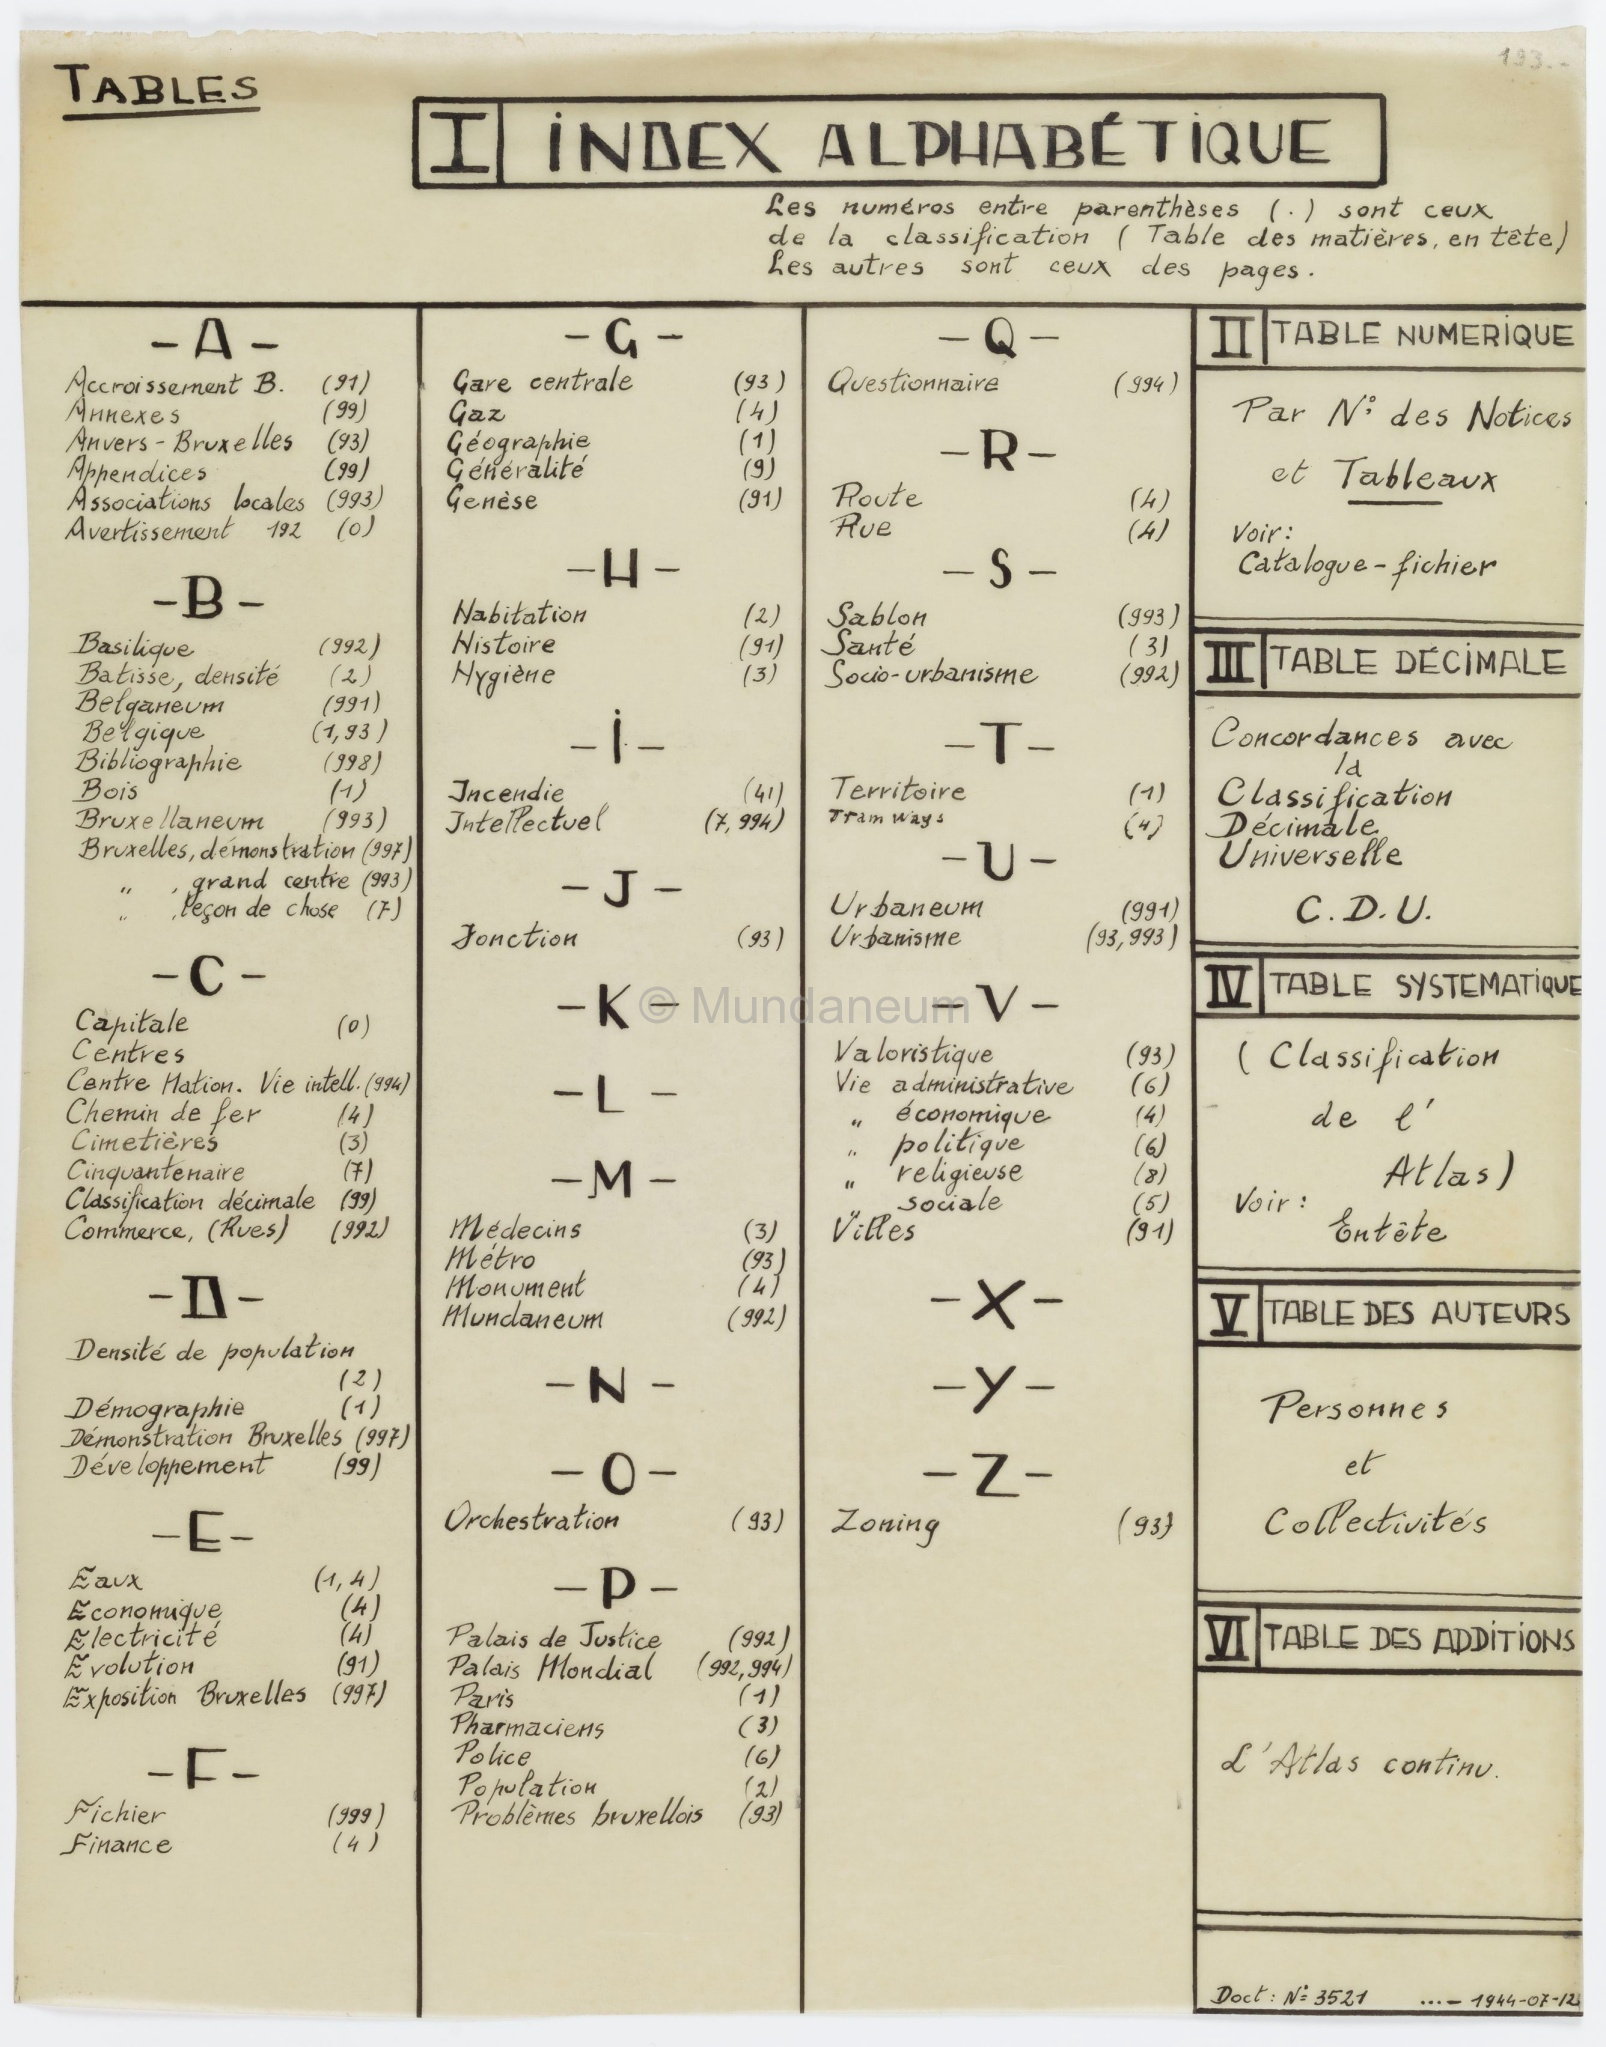 193.-
TABLES
I INDEX ALPHABÉTIQUE
Les numéros entre parenthèses (.) sont ceux
de la classification (Table des matières, en tête)
Les autres sont ceux des pages.
-A-
Accroissement B. (91)
Annexes (99)
Anvers-Bruxelles (93)
Appendices (99)
Associations locales (993)
Avertissement 192 (0)
-B-
Basilique (992)
Batisse, densité (2)
Belganeum (991)
Belgique (1,93)
Bibliographie (998)
Bois (1)
Bruxellaneum (993)
Bruxelles, démonstration (997)
" , grand centre (993)
" , leçon de chose (7)
-C-
Capitale (0)
Centres
Centre Nation. Vie intell. (994)
Chemin de fer (4)
Cimetières (3)
Cinquantenaire (7)
Classification décimale (99)
Commerce, (Rues) (992)
-D-
Densité de population
(2)
Démographie (1)
Démonstration Bruxelles (997)
Développement (99)
-E-
Eaux (1,4)
Economique (4)
Electricité (4)
Evolution (91)
Exposition Bruxelles (997)
-F-
Fichier (999)
Finance (4)
-G-
Gare centrale (93)
Gaz (4)
Géographie (1)
Généralité (9)
Genèse (91)
-H-
Habitation (2)
Histoire (91)
Hygiène (3)
-I-
Incendie (41)
Intellectuel (7,994)
-J-
Jonction (93)
-K-
-L-
-M-
Médecins (3)
Métro (93)
Monument (4)
Mundaneum (992)
-N-
-O-
Orchestration (93)
-P-
Palais de Justice (992)
Palais Mondial (992,994)
Paris (1)
Pharmaciens (3)
Police (6)
Population (2)
Problèmes bruxellois (93)
-Q-
Questionnaire (994)
-R-
Route (4)
Rue (4)
-S-
Sablon (993)
Santé (3)
Socio-urbanisme (992)
-T-
Territoire (1)
Tramways (4)
-U-
Urbaneum (991)
Urbanisme (93,993)
-V-
Valoristique (93)
Vie administrative (6)
" économique (4)
" politique (6)
" religieuse (8)
" sociale (5)
Villes (91)
-X-
-Y-
-Z-
Zoning (93)
II TABLE NUMERIQUE
Par N° des Notices
et Tableaux
Voir:
Catalogue-fichier
III TABLE DÉCIMALE
Concordances avec
la
Classification
Décimale
Universelle
C.D.U.
IV TABLE SYSTEMATIQUE
(Classification
de l'
Atlas)
Voir:
Entête
V TABLE DES AUTEURS
Personnes
et
Collectivités
VI TABLE DES ADDITIONS
L'Atlas continu.
Doct: N° 3521 ...- 1944-07-12
© Mundaneum